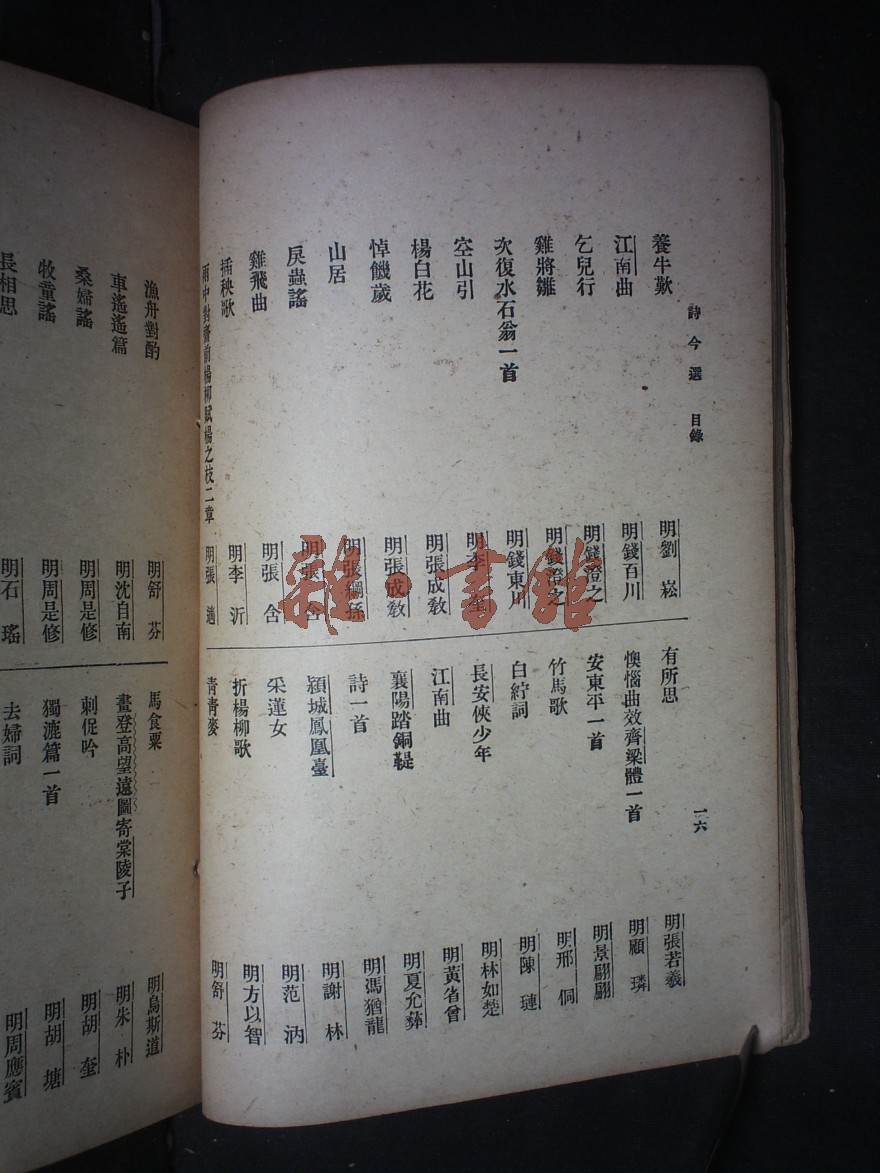 詩今選 目錄
一六
養牛歎 明劉崧
江南曲 明錢百川
乞兒行 明錢澄之
雞將雛 明錢澄之
次復水石翁一首 明錢東川
空山引 明李奎
楊白花 明張成教
悼饑歲 明張成教
山居 明張綱孫
戾蟲謠 明張含
雞飛曲 明張含
插秧歌 明李沂
雨中對齋前楊柳賦楊之枝二章 明張適
有所思 明張若羲
懊惱曲效齊梁體一首 明顧璘
安東平一首 明景翩翩
竹馬歌 明邢侗
白紵詞 明陳璉
長安俠少年 明林如楚
江南曲 明黃省曾
襄陽踏銅鞮 明夏允彝
詩一首 明馮猶龍
潁城鳳凰臺 明謝林
采蓮女 明范汭
折楊柳歌 明方以智
青青麥 明舒芬
漁舟對酌 明舒芬
車遙遙篇 明沈自南
桑婦謠 明周是修
牧童謠 明周是修
長相思 明石瑤
馬食粟 明烏斯道
畫登高望遠圖寄棠陵子 明朱朴
刺促吟 明胡奎
獨漉篇一首 明胡塘
去婦詞 明周應賓
雜·書館